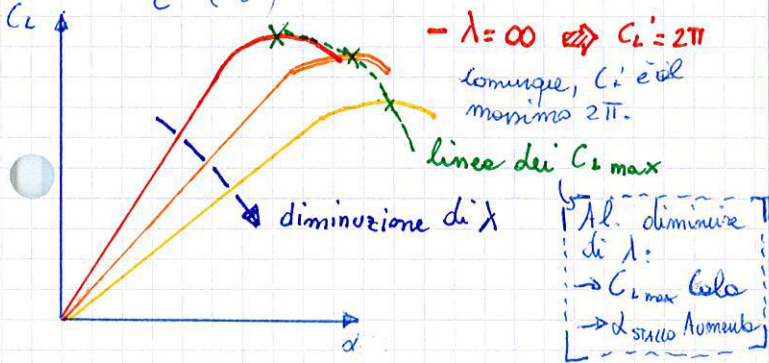 C_L
- λ = ∞ ⇒ C_L' = 2π
comunque, C_L' è al
massimo 2π.
linea dei C_L max
diminuzione di λ
Al diminuire
di λ:
→ C_L max Cala
→ α STALLO Aumenta
α